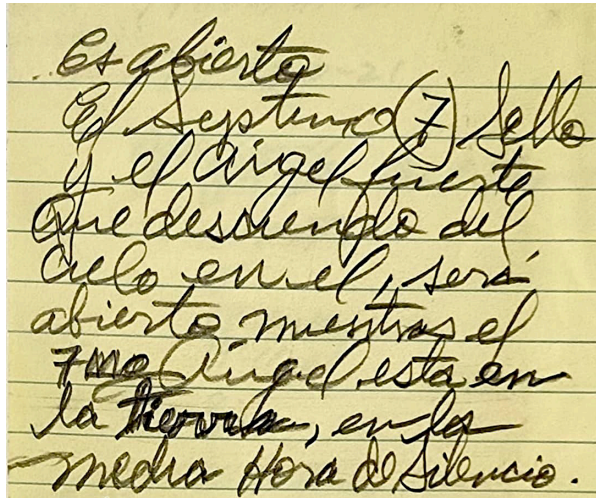 es abierto
El Septimo (7) Sello
y el Angel fuerte
que desciende del
cielo en el, será
abierto mientras el
7mo Angel esta en
la tierra, en la
media Hora de Silencio.